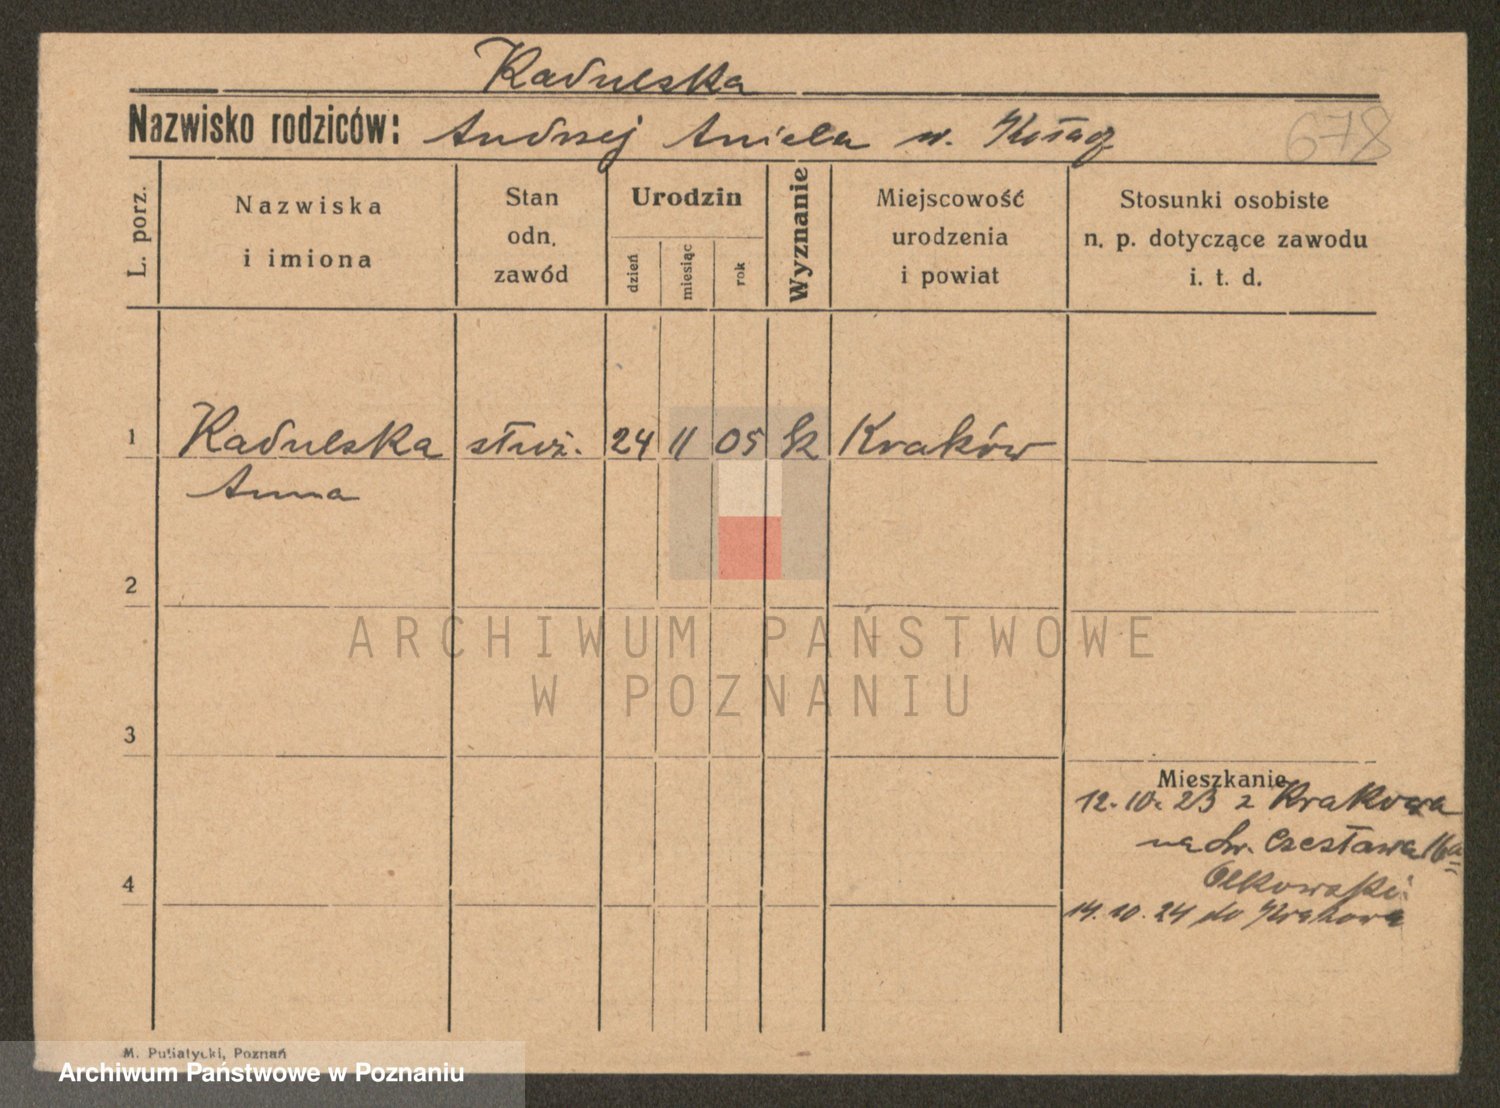 Radulska
Nazwisko rodziców: Andrzej Aniela w. Kołacz
678
L. porz.
Nazwiska
i imiona
Stan
odn.
zawód
Urodzin
dzień
miesiąc
rok
Wyznanie
Miejscowość
urodzenia
i powiat
Stosunki osobiste
n. p. dotyczące zawodu
i. t. d.
1 Radulska służ. 24 11 05 Kraków
Anna
2
ARCHIWUM PAŃSTWOWE
W POZNANIU
3
Mieszkanie
12. 10. 23 z Krakowa
na św. Czesława 16a
Olkowski
4
14. 10. 24 do Krakowa
M. Putiatycki, Poznań
Archiwum Państwowe w Poznaniu